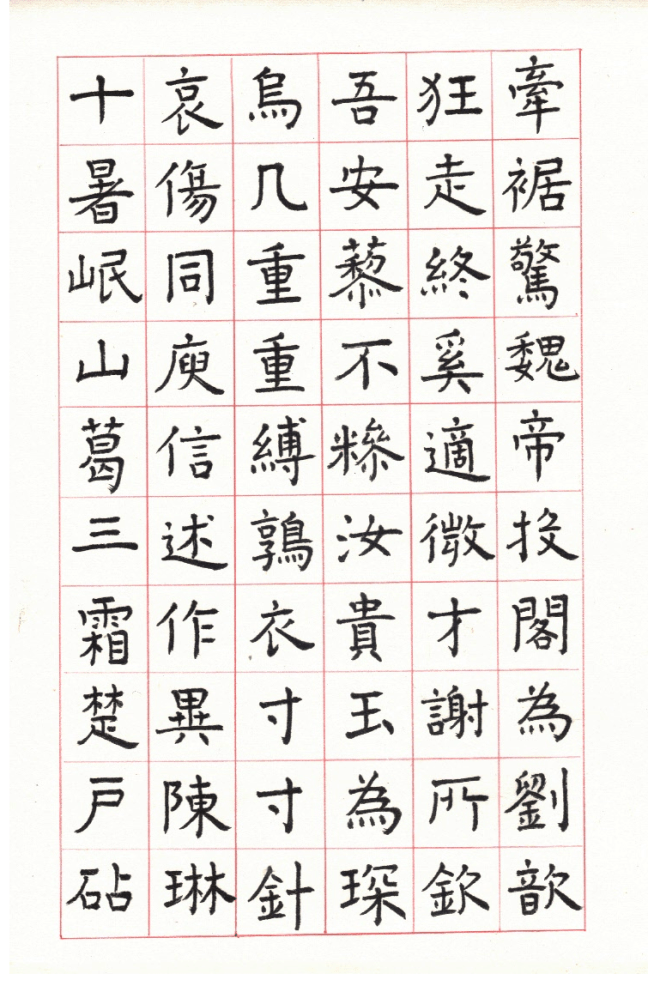 牽裾驚魏帝投閣為劉歆
狂走終奚適微才謝所欽
吾安藜不糝汝貴玉為琛
烏几重重縛鶉衣寸寸針
哀傷同庾信述作異陳琳
十暑岷山葛三霜楚戶砧